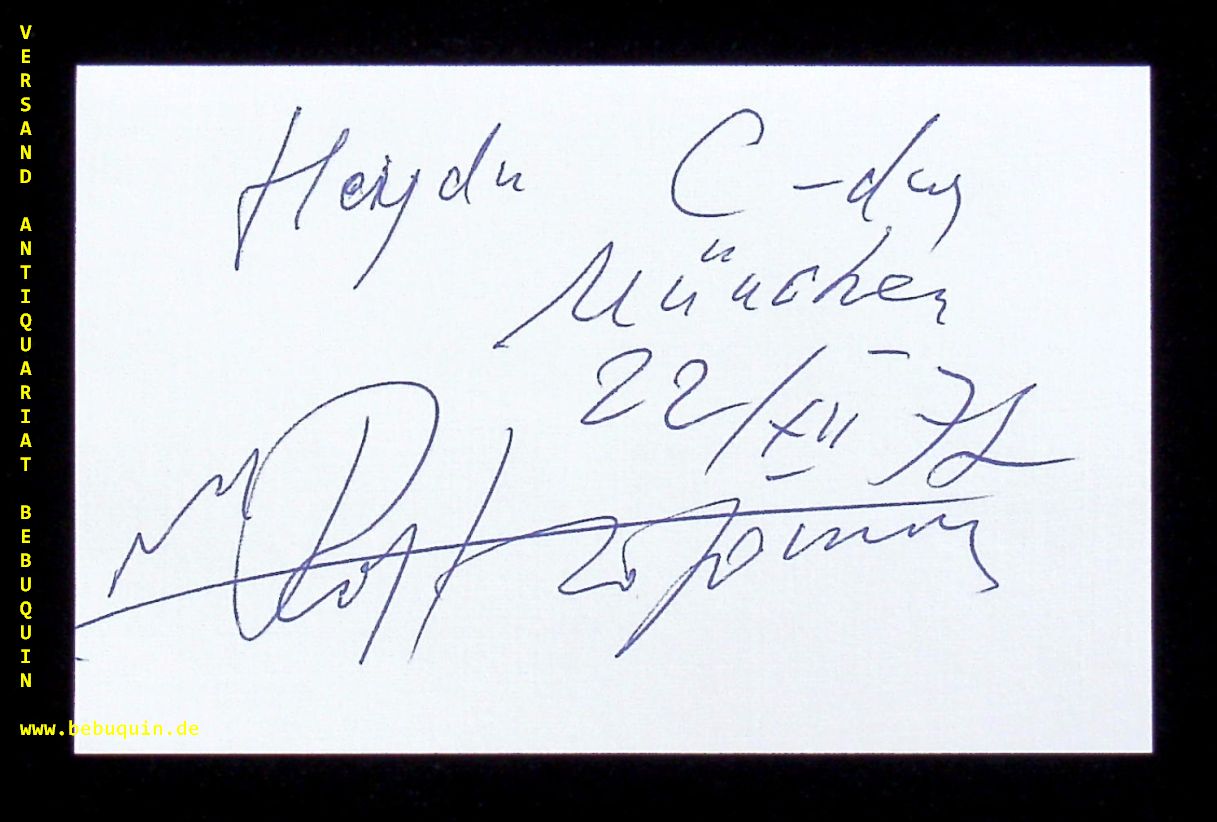 VERSAND ANTIQUARIAT BEBUQUIN
www.bebuquin.de
Haydn C-dur
München
22/XII 72
M Rostropowitsch